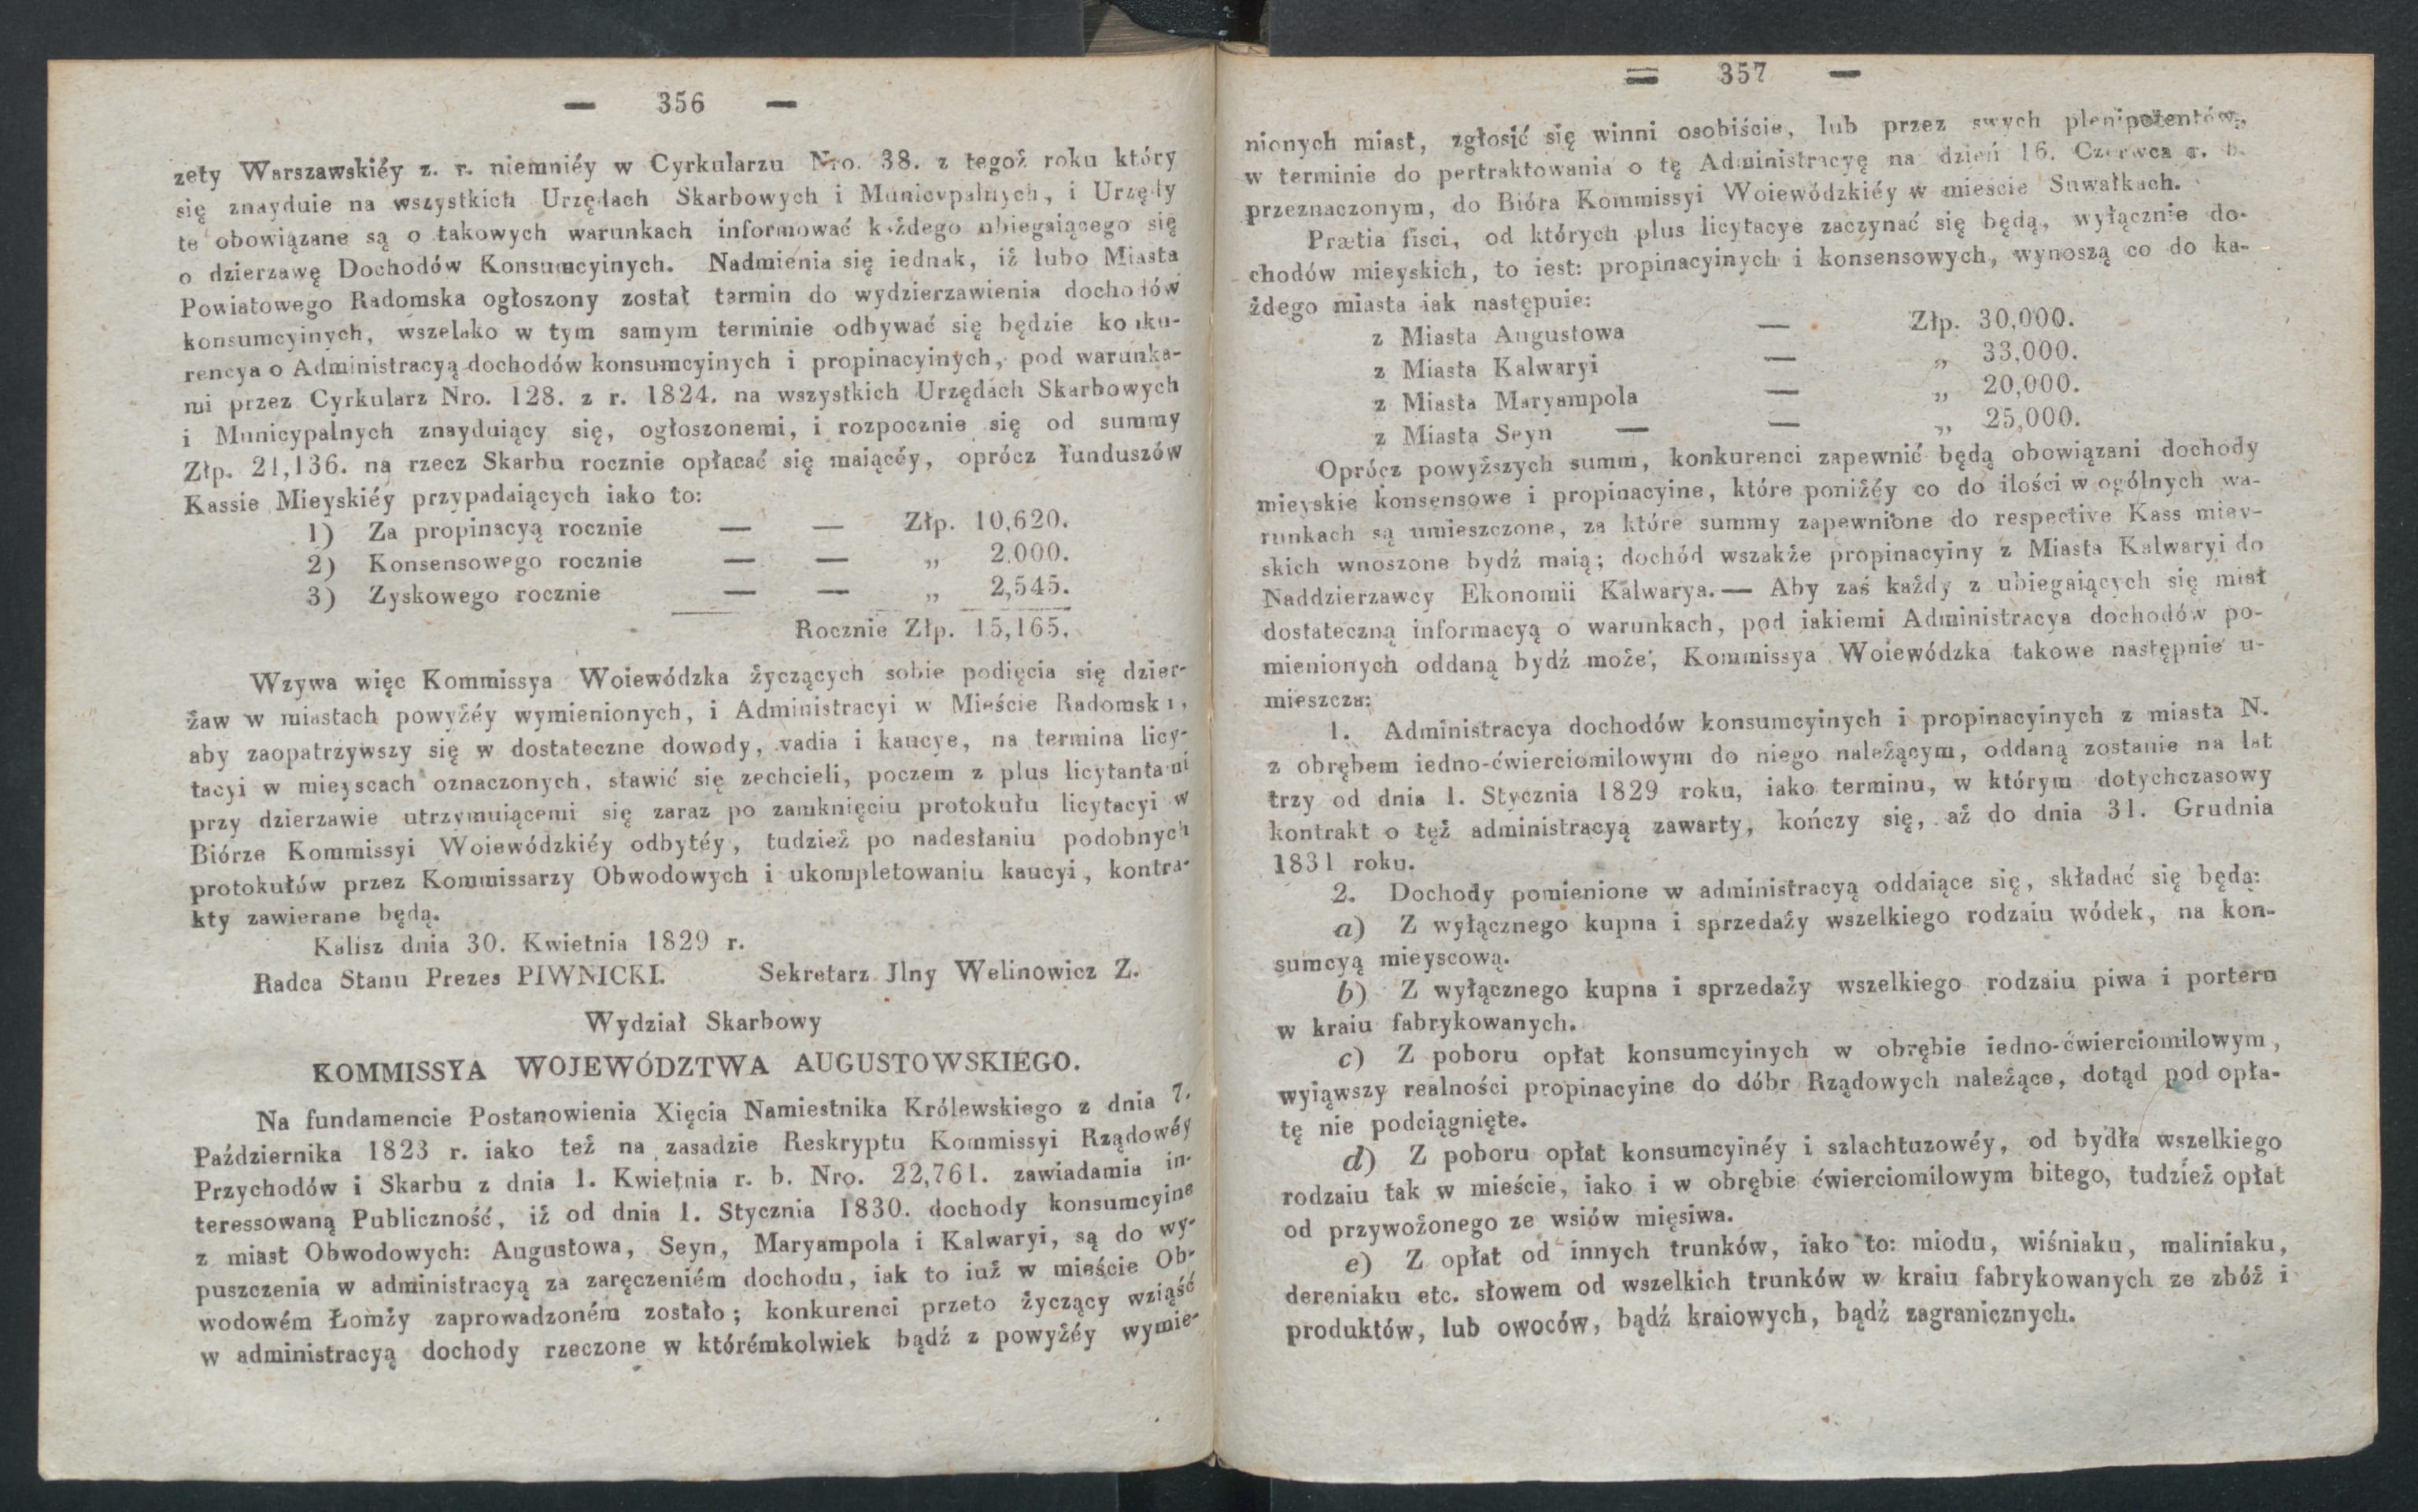 — 356 —
zety Warszawskiéy z. r. niemniéy w Cyrkularzu Nro. 38. z tegoż roku który
się znayduie na wszystkich Urzędach Skarbowych i Municypalnych, i Urzędy
te obowiązane są o takowych warunkach informować każdego ubiegaiącego się
o dzierzawę Dochodów Konsumcyinych. Nadmienia się iednak, iż lubo Miasta
Powiatowego Radomska ogłoszony został termin do wydzierzawienia dochodów
konsumcyinych, wszelako w tym samym terminie odbywać się będzie konku-
rencya o Administracyą dochodów konsumcyinych i propinacyinych, pod warunka-
mi przez Cyrkularz Nro. 128. z r. 1824. na wszystkich Urzędach Skarbowych
i Municypalnych znayduiący się, ogłoszonemi, i rozpocznie się od summy
Złp. 21,136. na rzecz Skarbu rocznie opłacać się maiącéy, oprócz funduszów
Kassie Mieyskiéy przypadaiących iako to:
1) Za propinacyą rocznie — — Złp. 10,620.
2) Konsensowego rocznie — — „ 2,000.
3) Zyskowego rocznie — — „ 2,545.
Rocznie Złp. 15,165.
Wzywa więc Kommissya Woiewódzka życzących sobie podięcia się dzier-
żaw w miastach powyżéy wymienionych, i Administracyi w Mieście Radomsku,
aby zaopatrzywszy się w dostateczne dowody, vadia i kaucye, na termina licy-
tacyi w mieyscach oznaczonych, stawić się zechcieli, poczem z plus licytantami
przy dzierzawie utrzymuiącemi się zaraz po zamknięciu protokułu licytacyi w
Biórze Kommissyi Woiewódzkiéy odbytéy, tudzież po nadesłaniu podobnych
protokułów przez Kommissarzy Obwodowych i ukompletowaniu kaucyi, kontra-
kty zawierane będą.
Kalisz dnia 30. Kwietnia 1829 r.
Radca Stanu Prezes PIWNICKI. Sekretarz Jlny Welinowicz Z.
Wydział Skarbowy
KOMMISSYA WOJEWÓDZTWA AUGUSTOWSKIEGO.
Na fundamencie Postanowienia Xięcia Namiestnika Królewskiego z dnia 7.
Października 1823 r. iako też na zasadzie Reskryptu Kommissyi Rządowéy
Przychodów i Skarbu z dnia 1. Kwietnia r. b. Nro. 22,761. zawiadamia in-
teressowaną Publiczność, iż od dnia 1. Stycznia 1830. dochody konsumcyine
z miast Obwodowych: Augustowa, Seyn, Maryampola i Kalwaryi, są do wy-
puszczenia w administracyą za zaręczeniém dochodu, iak to iuż w mieście Ob-
wodowém Łomży zaprowadzoném zostało; konkurenci przeto życzący wziąść
w administracyą dochody rzeczone w którémkolwiek bądź z powyżéy wymie-
— 357 —
nionych miast, zgłosić się winni osobiście, lub przez swych plenipotentów,
w terminie do pertraktowania o tę Administracyę na dzień 16. Czerwca r. b.
przeznaczonym, do Bióra Kommissyi Woiewódzkiéy w miescie Suwałkach.
Prætia fisci, od których plus licytacye zaczynać się będą, wyłącznie do-
chodów mieyskich, to iest: propinacyinych i konsensowych, wynoszą co do ka-
żdego miasta iak następuie:
z Miasta Augustowa — Złp. 30,000.
z Miasta Kalwaryi — „ 33,000.
z Miasta Maryampola — „ 20,000.
z Miasta Seyn — — „ 25,000.
Oprócz powyższych summ, konkurenci zapewnić będą obowiązani dochody
mieyskie konsensowe i propinacyine, które poniżéy co do ilości w ogólnych wa-
runkach są umieszczone, za które summy zapewnione do respective Kass miey-
skich wnoszone bydź maią; dochód wszakże propinacyiny z Miasta Kalwaryi do
Naddzierzawcy Ekonomii Kalwarya.— Aby zaś każdy z ubiegaiących się miał
dostateczną informacyą o warunkach, pod iakiemi Administracya dochodów po-
mienionych oddaną bydź może, Kommissya Woiewódzka takowe następnie u-
mieszcza:
1. Administracya dochodów konsumcyinych i propinacyinych z miasta N.
z obrębem iedno-ćwierciomilowym do niego należącym, oddaną zostanie na lat
trzy od dnia 1. Stycznia 1829 roku, iako terminu, w którym dotychczasowy
kontrakt o tęż administracyą zawarty, kończy się, aż do dnia 31. Grudnia
1831 roku.
2. Dochody pomienione w administracyą oddaiące się, składać się będą:
a) Z wyłącznego kupna i sprzedaży wszelkiego rodzaiu wódek, na kon-
sumcyą mieyscową.
b) Z wyłącznego kupna i sprzedaży wszelkiego rodzaiu piwa i porteru
w kraiu fabrykowanych.
c) Z poboru opłat konsumcyinych w obrębie iedno-ćwierciomilowym,
wyiąwszy realności propinacyine do dóbr Rządowych należące, dotąd pod opła-
tę nie podciągnięte.
d) Z poboru opłat konsumcyinéy i szlachtuzowéy, od bydła wszelkiego
rodzaiu tak w mieście, iako i w obrębie ćwierciomilowym bitego, tudzież opłat
od przywożonego ze wsiów mięsiwa.
e) Z opłat od innych trunków, iako to: miodu, wiśniaku, maliniaku,
dereniaku etc. słowem od wszelkich trunków w kraiu fabrykowanych ze zbóż i
produktów, lub owoców, bądź kraiowych, bądź zagranicznych.